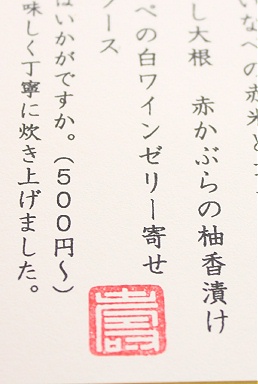 いなべの赤米と
し大根　赤かぶらの柚香漬け
べの白ワインゼリー寄せ
ソース
はいかがですか。（５００円～）
味しく丁寧に炊き上げました。
壽